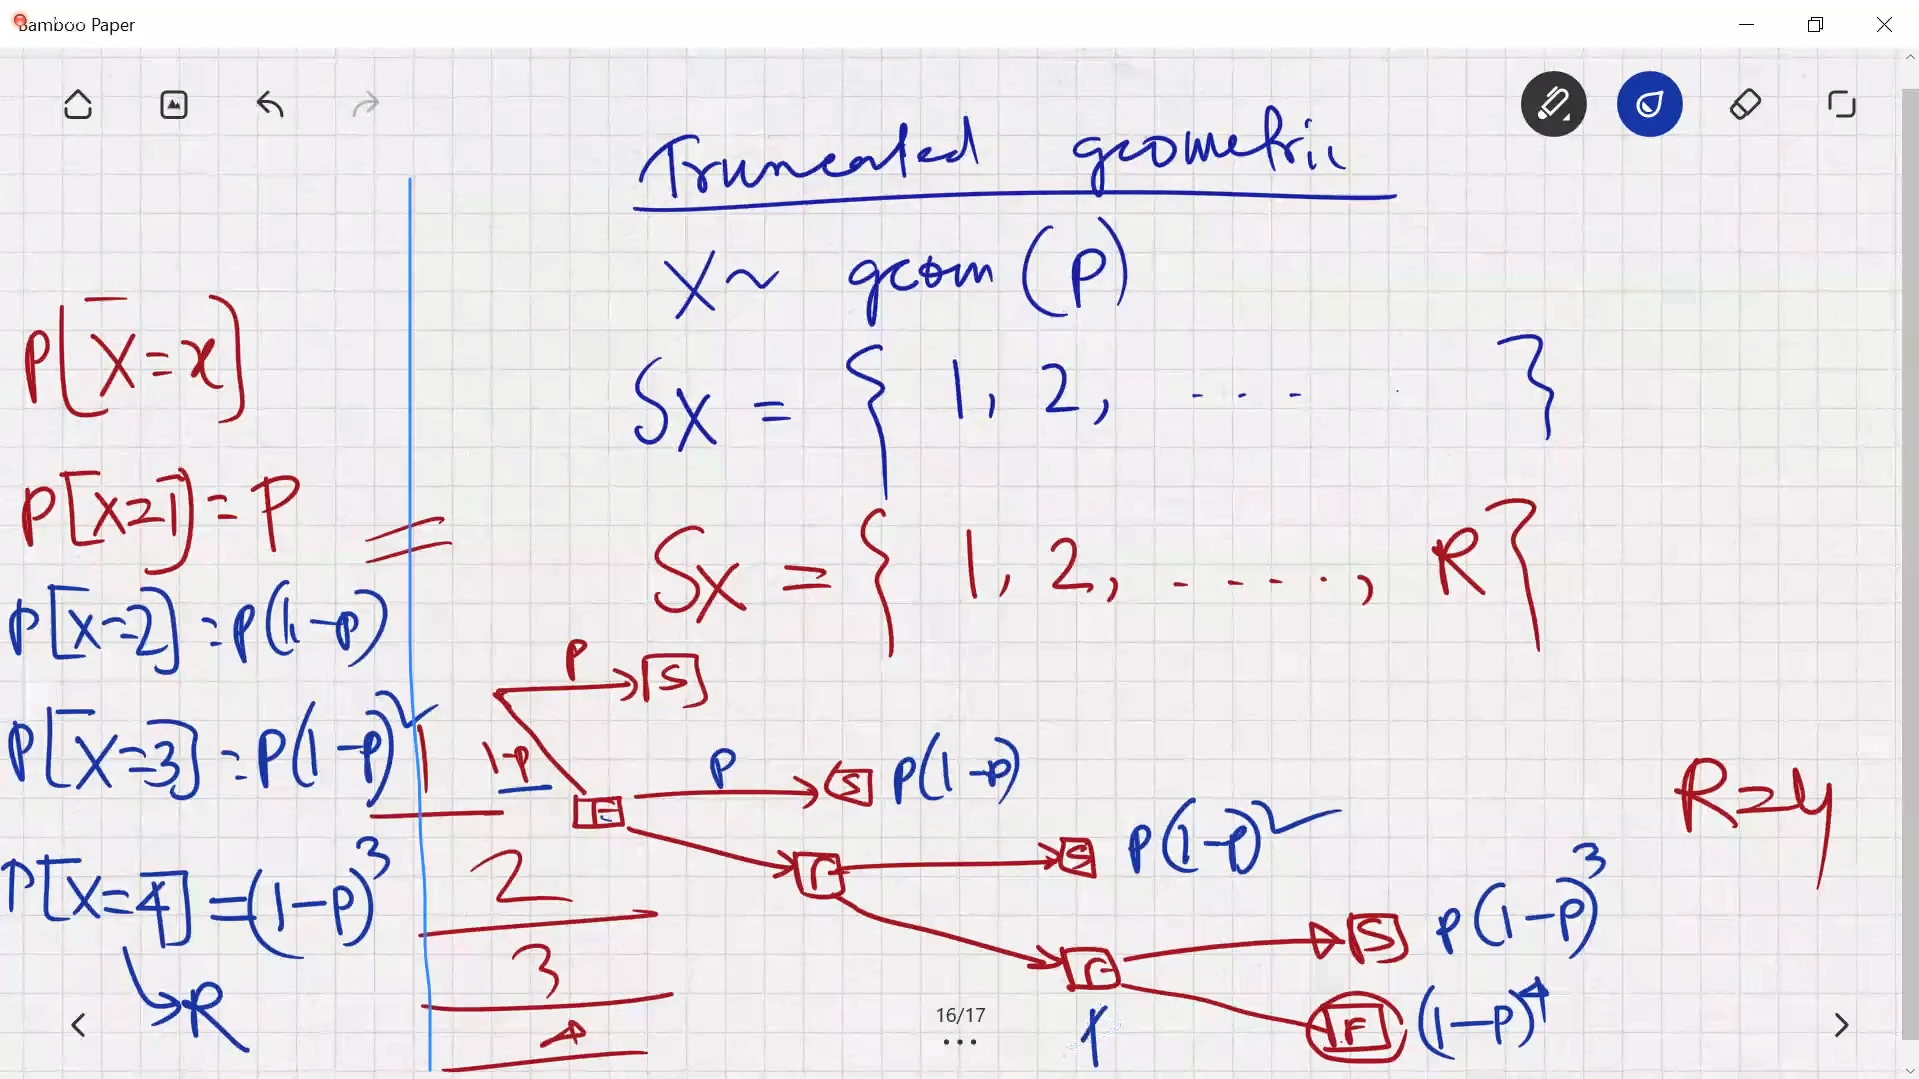 Bamboo Paper
Truncated geometric
X ~ geom (p)
Sx = { 1, 2, ... }
Sx = { 1, 2, ....., R }
P[X=x]
P[X=1] = P
P[X=2] = p(1-p)
P[X=3] = p(1-p)²
P[X=4] = (1-p)³
R
1
2
3
4
p S
1-p
F p S p(1-p)
F S p(1-p)²
F S p(1-p)³
F (1-p)⁴
R=4
16/17